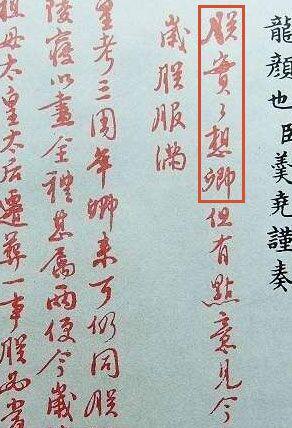 龍顏也臣羹堯謹奏
朕實々想卿但有點意見今
歲朕服滿
皇考三周年卿來可仍同朕
陵寢以盡全禮甚屬兩便今歲
祖母太皇太后遷葬一事朕